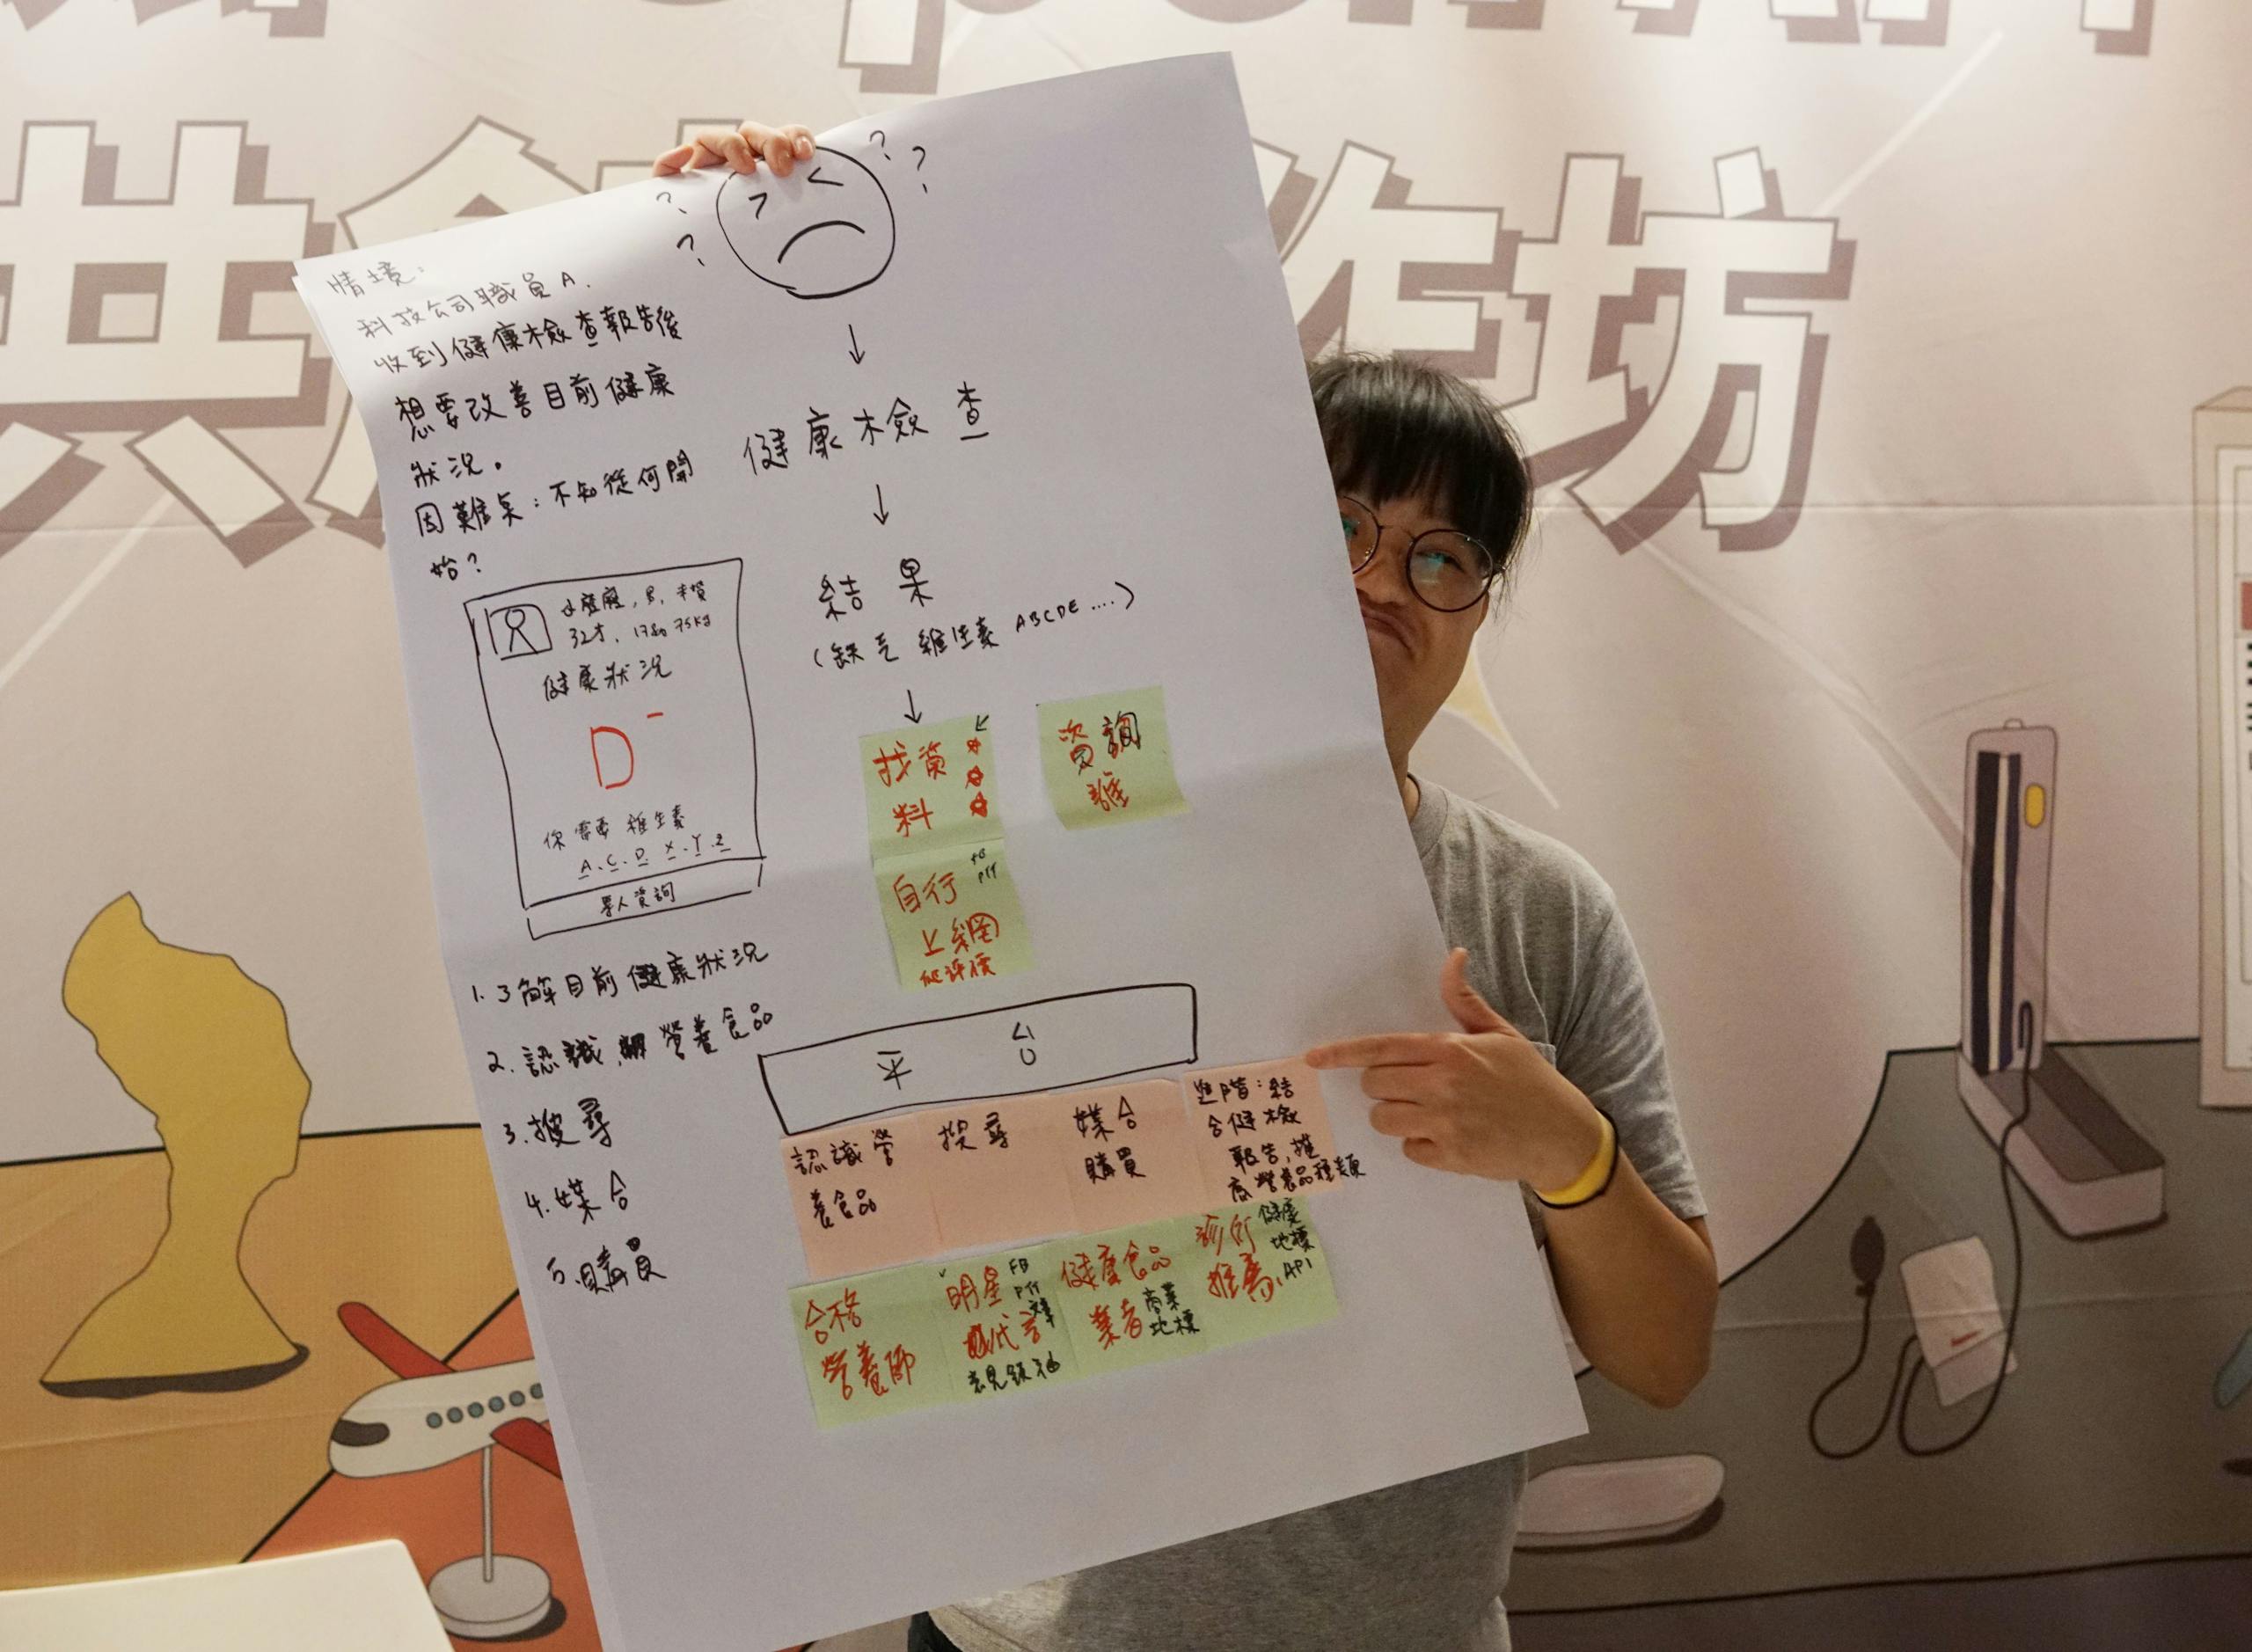 共 作坊
? ? ? ?
情境:
科技公司職員A.
收到健康檢查報告後
想要改善目前健康
狀況。
困難點:不知從何開
始?
男,未婚
32才,178cm 75kg
健康狀況
D-
你需要維生素
A.C.D.X.Y.Z
專人資詢
1.了解目前健康狀況
2.認識 營養食品
3.搜尋
4.媒合
5.購買
↓
健康檢查
↓
結果
(缺乏維生素ABCDE....)
↓
找資
料
資詢
誰
自行
上網
FB
PTT
平台
認識營
養食品
搜尋
媒合
購買
進階:結
合健檢
報告,推
薦營養品種類
合格
營養師
明星
代言
FB
PTT
意見領袖
健康食品
業者
商業
地標
診所
推薦
健康
地標
API